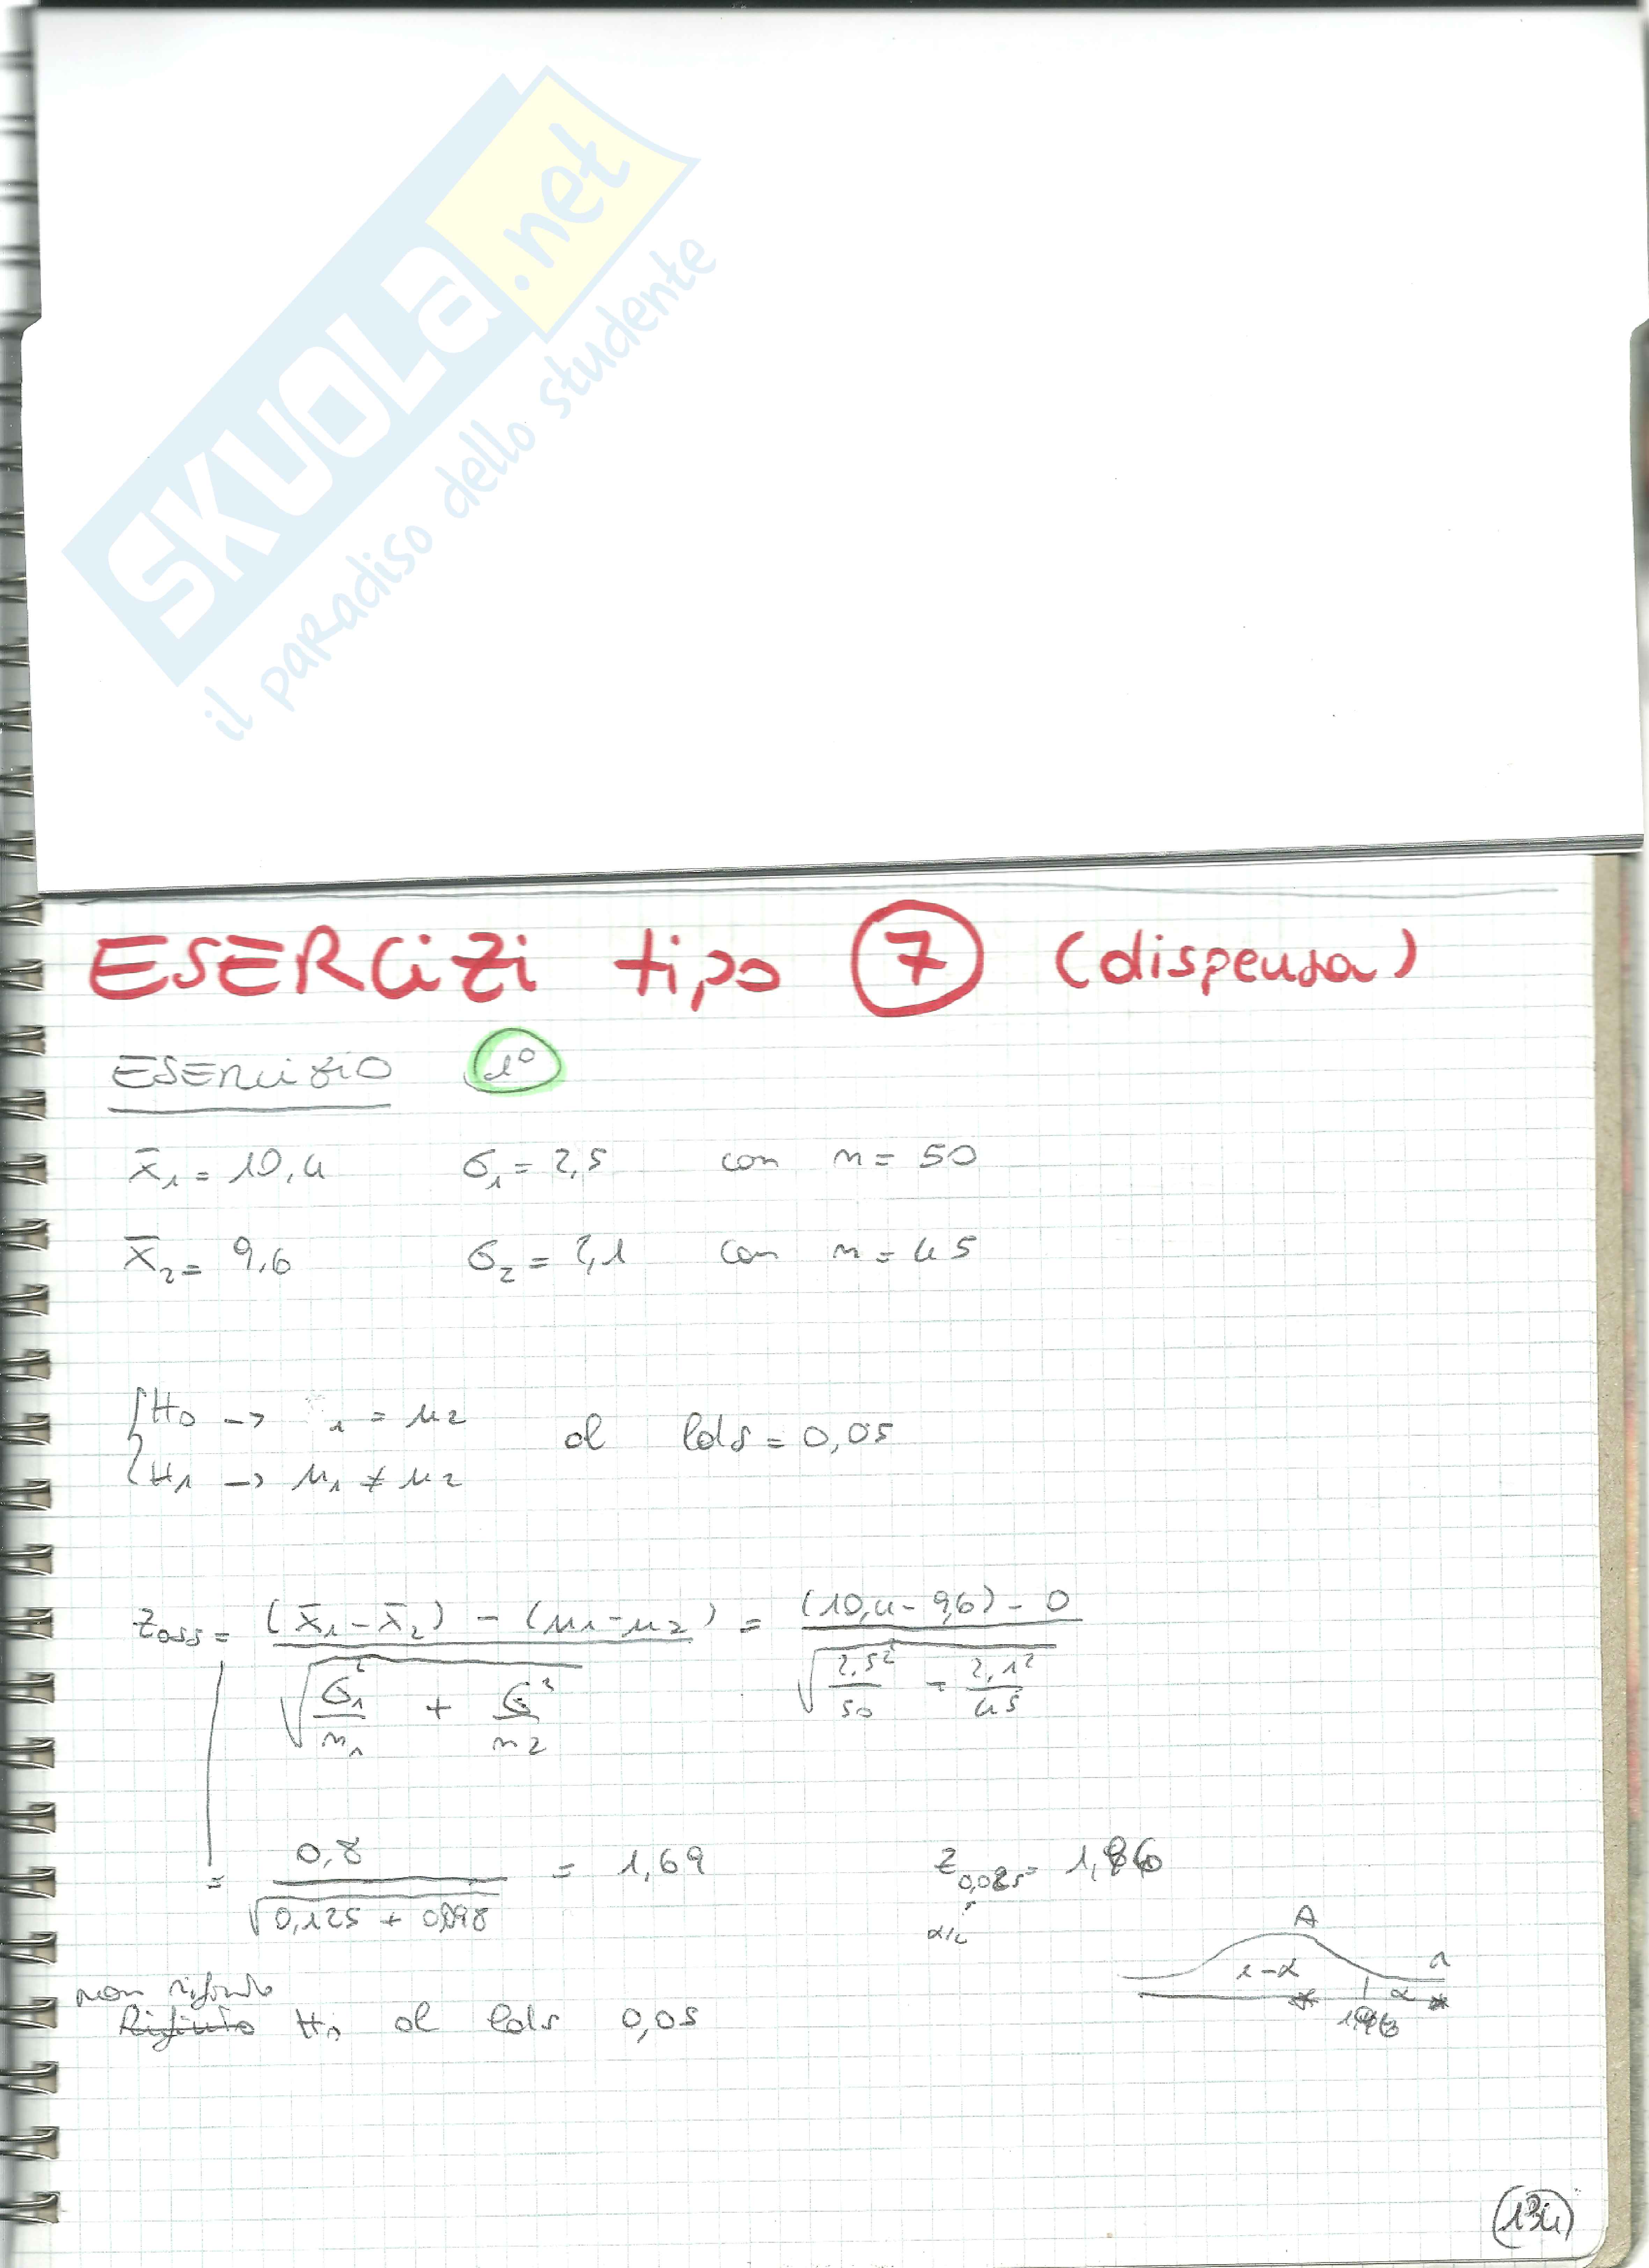 SKUOLa.net
il paradiso dello studente
ESERCIZI tipo 7 (dispensa)
ESERCIZIO 1°
x̄₁ = 10,4 σ₁ = 2,5 con n = 50
x̄₂ = 9,6 σ₂ = 2,1 con n = 45
{H0 -> ₁ = μ2
{H1 -> μ1 ≠ μ2
al lds = 0,05
Zoss = (x̄₁ - x̄₂) - (μ1 - μ2) / √(σ₁²/n₁ + σ²/n2) = (10,4 - 9,6) - 0 / √(2,5²/50 - 2,1²/45)
= 0,8 / √(0,125 + 0,098) = 1,69
Z0,025 = 1,96
α/2
A
1-α α
non rifiuto
Rifiuto H0 al lds 0,05
134